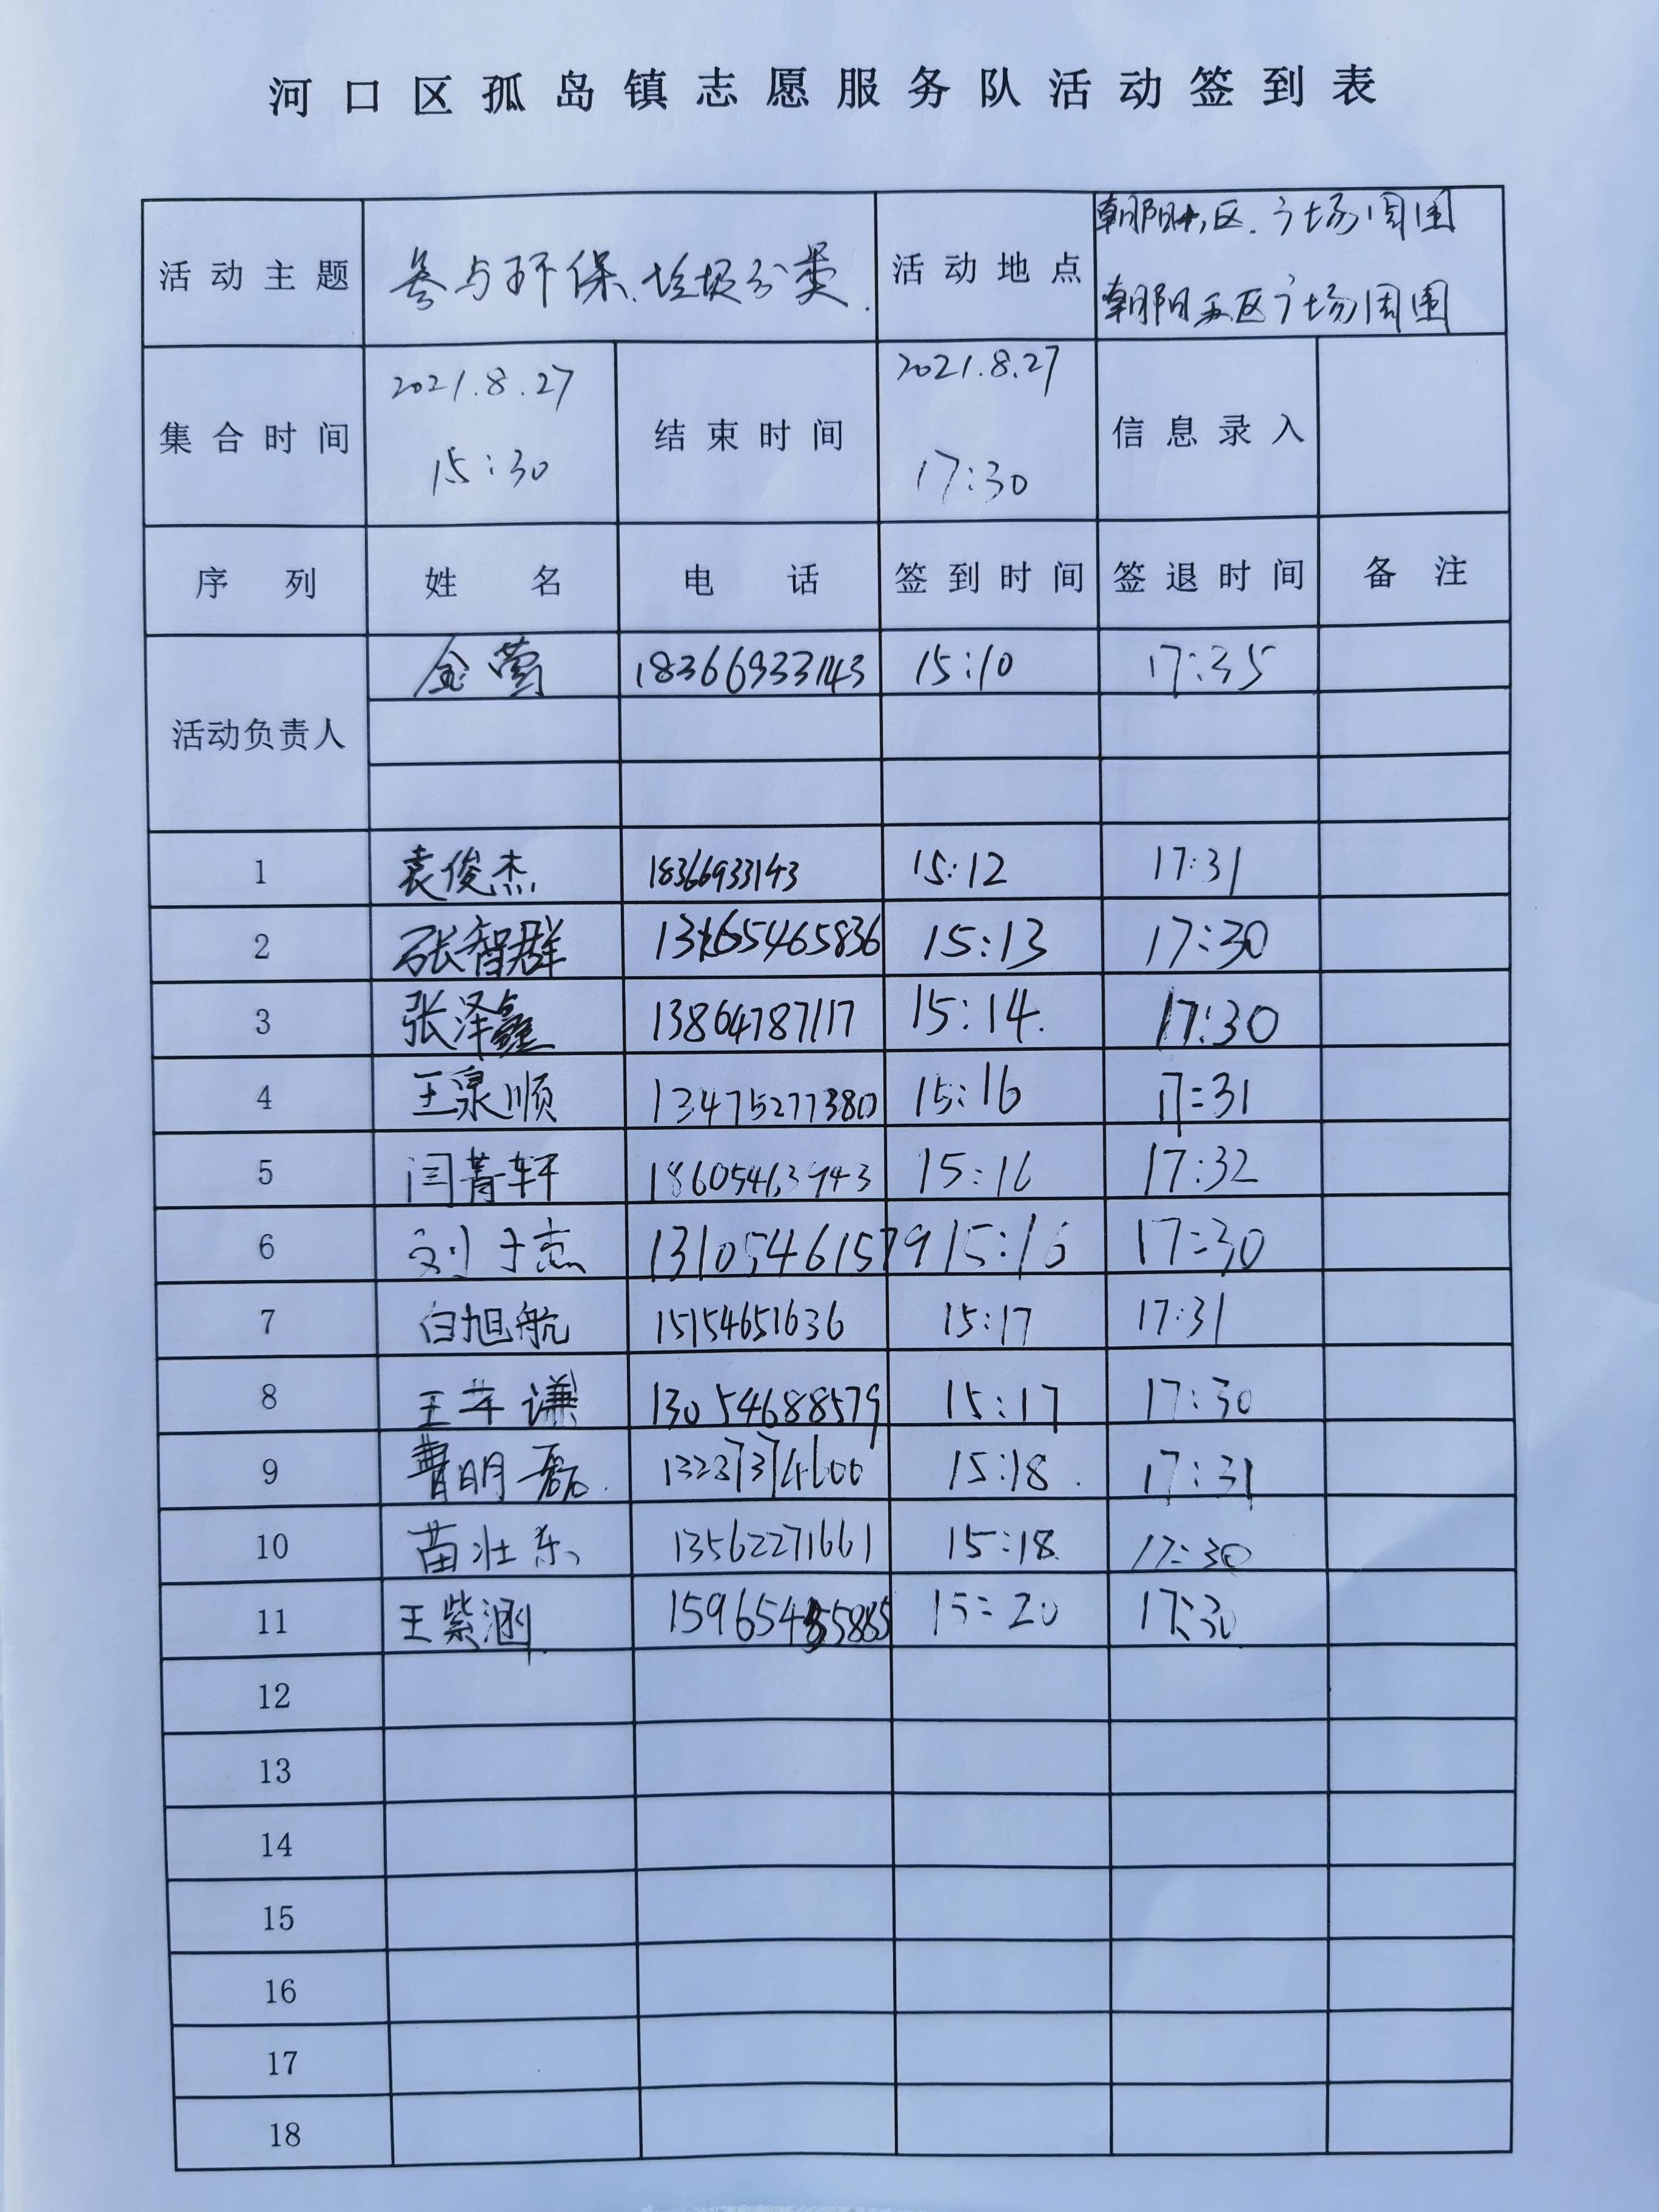 河口区孤岛镇志愿服务队活动签到表
活动主题 参与环保、垃圾分类. 活动地点 朝阳 区.广场周围
朝阳五区广场周围
集合时间 2021.8.27 15:30 结束时间 2021.8.27 17:30 信息录入
序列 姓名 电话 签到时间 签退时间 备注
活动负责人 金莺 18366933143 15:10 17:35
1 袁俊杰 18366933143 15:12 17:31
2 张智群 15:13 17:30
3 张泽鑫 13864787117 15:14. 17:30
4 王泉顺 13475277380 15:16 17:31
5 闫菁轩 18605463943 15:16 17:32
6 刘于杰 13105461579 15:16 17:30
7 白旭航 15154651636 15:17 17:31
8 王 谦 13054688579 15:17 17:30
9 曹明磊. 15:18. 17:31
10 苗壮东 13562271661 15:18 17:30
11 王紫涵 15:20 17:30
12
13
14
15
16
17
18